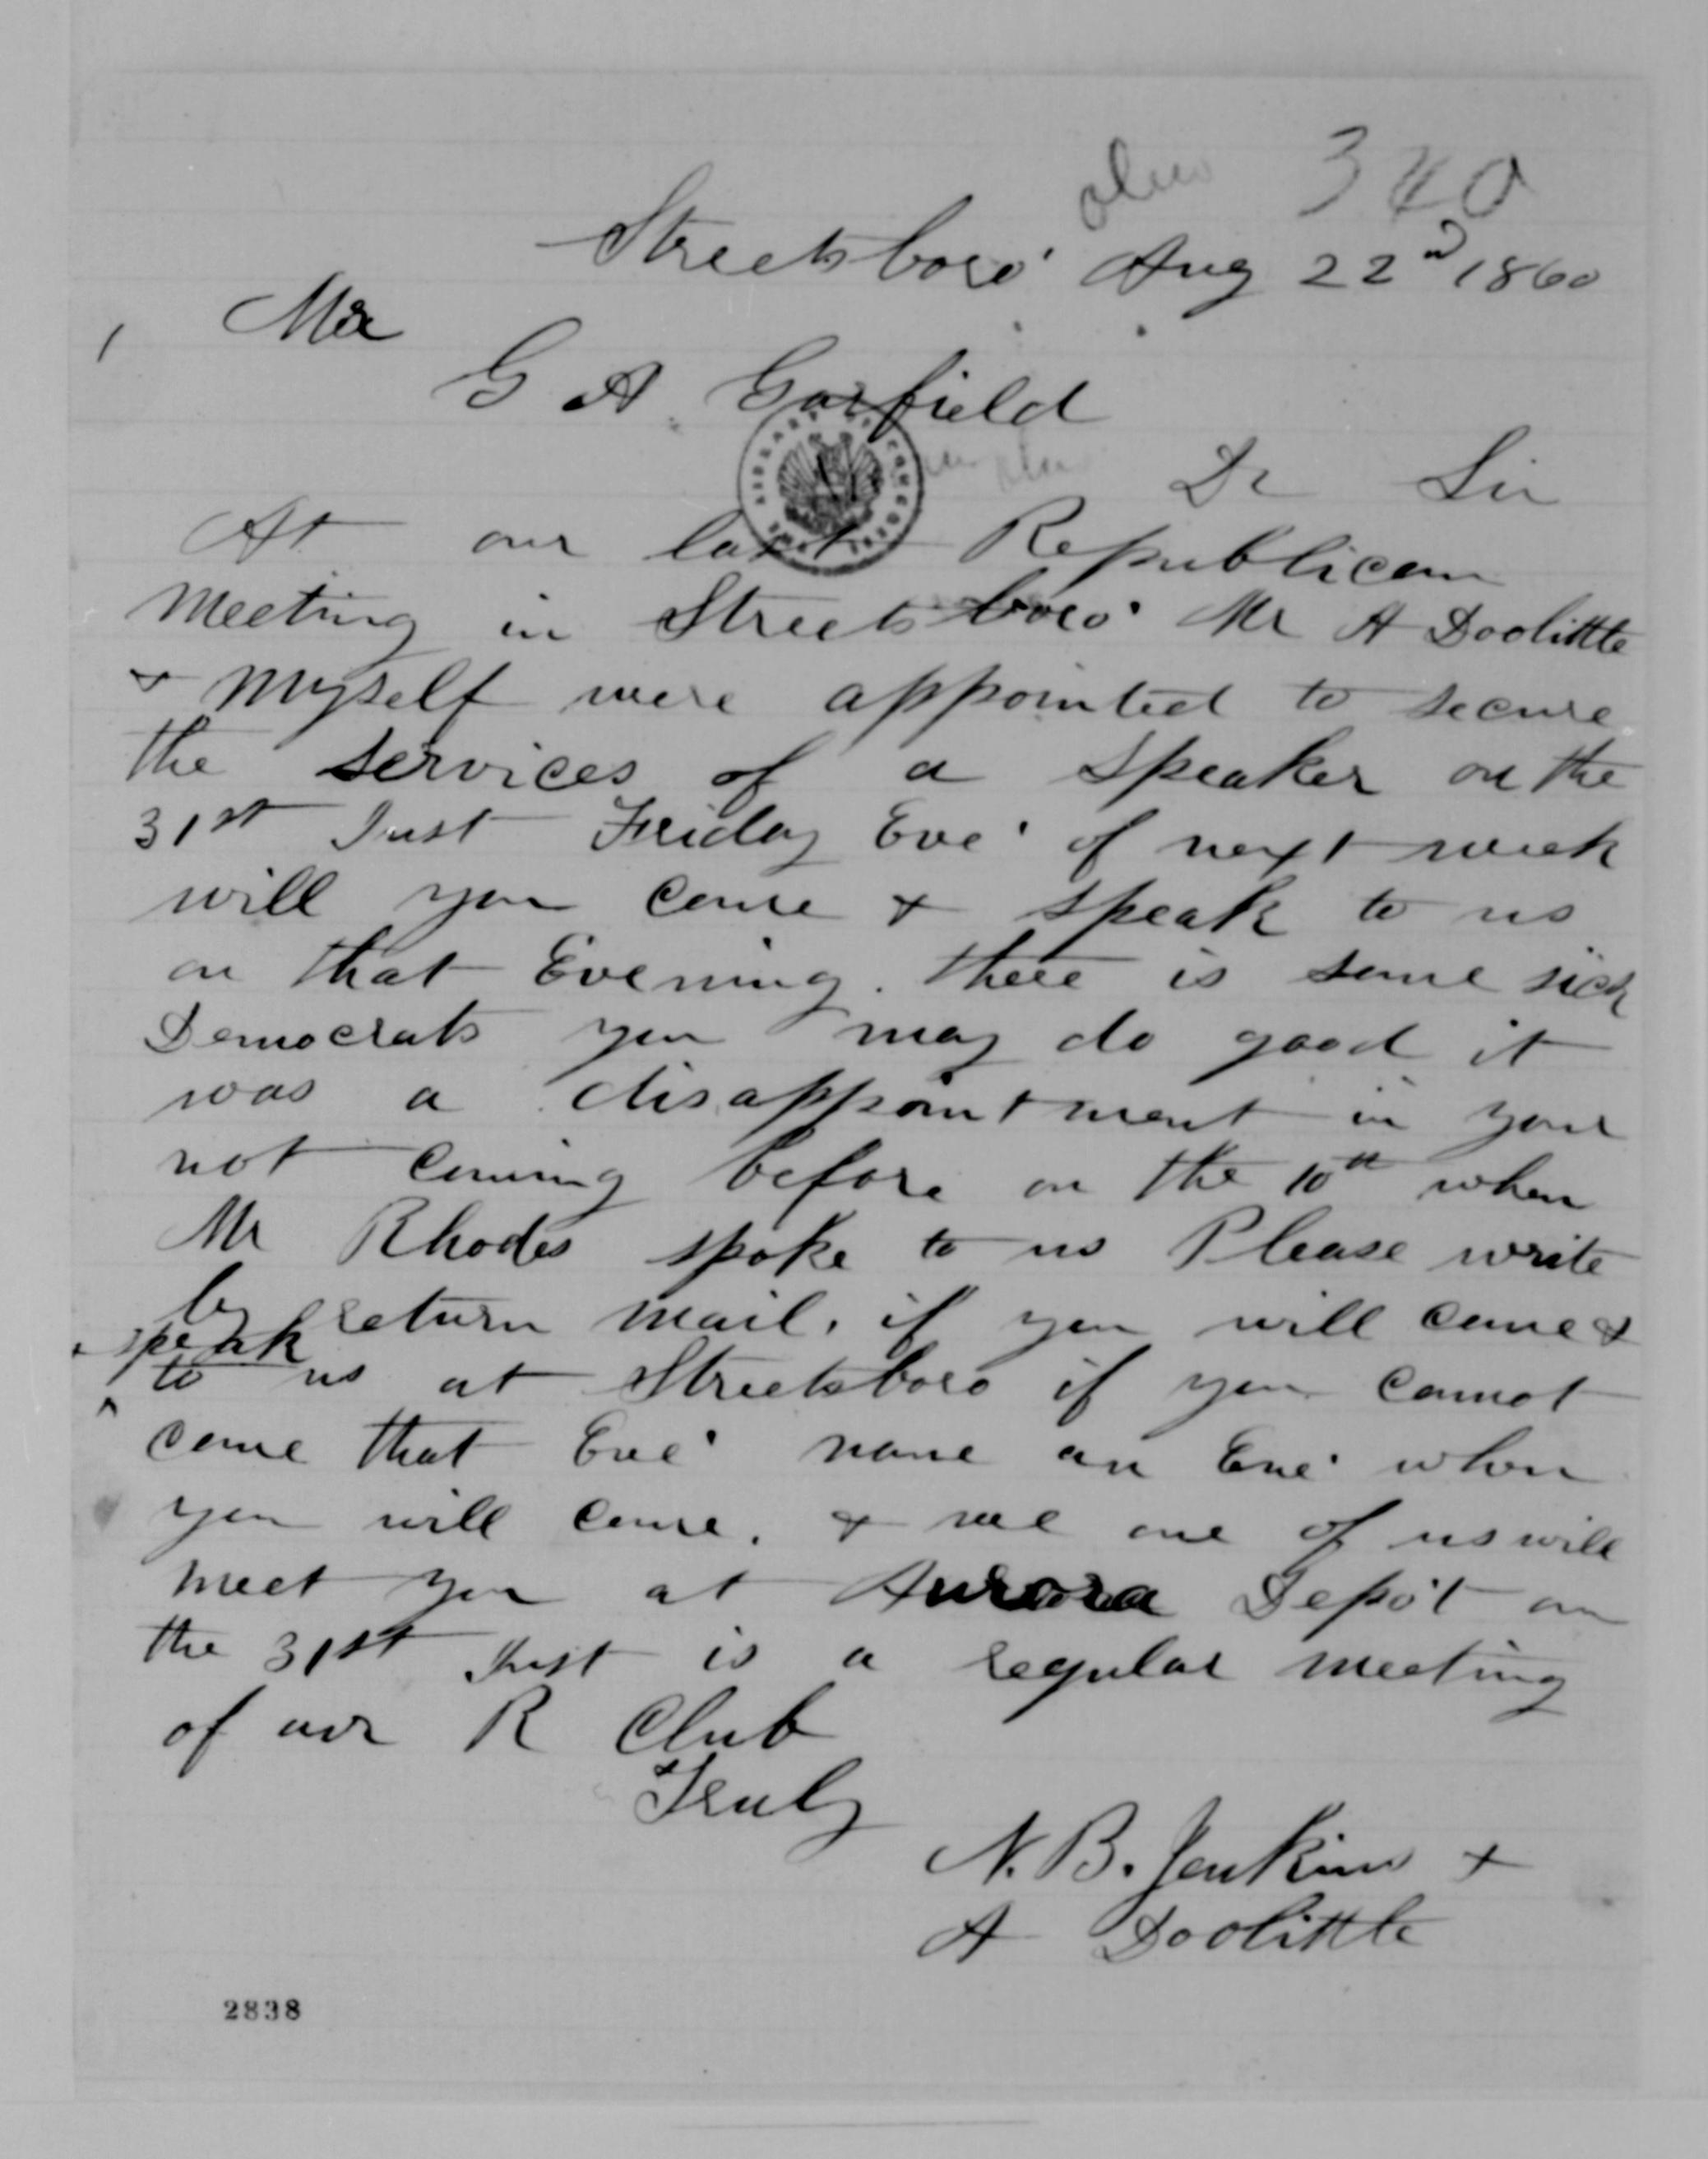 Ohio 340
Streetsboro' Aug 22nd 1860
Mr
G A Garfield
Dr Sir
At our last Republican
meeting in Streetsboro' Mr A Doolittle
& myself were appointed to secure
the services of a speaker on the
31st Inst Friday Eve' of next week
will you come & speak to us
on that Evening. there is some sick
Democrats you may do good it
was a disappointment in your
not coming before on the 10th when
Mr Rhodes spoke to us Please write
by return mail, if you will come &
speak
to us at Streetsboro if you cannot
come that Eve' name an Eve' when
you will come. & we one of us will
meet you at Aurora Depot on
the 31st Inst is a regular meeting
of our R Club
Truly
N. B. Jenkins &
A Doolittle
2838